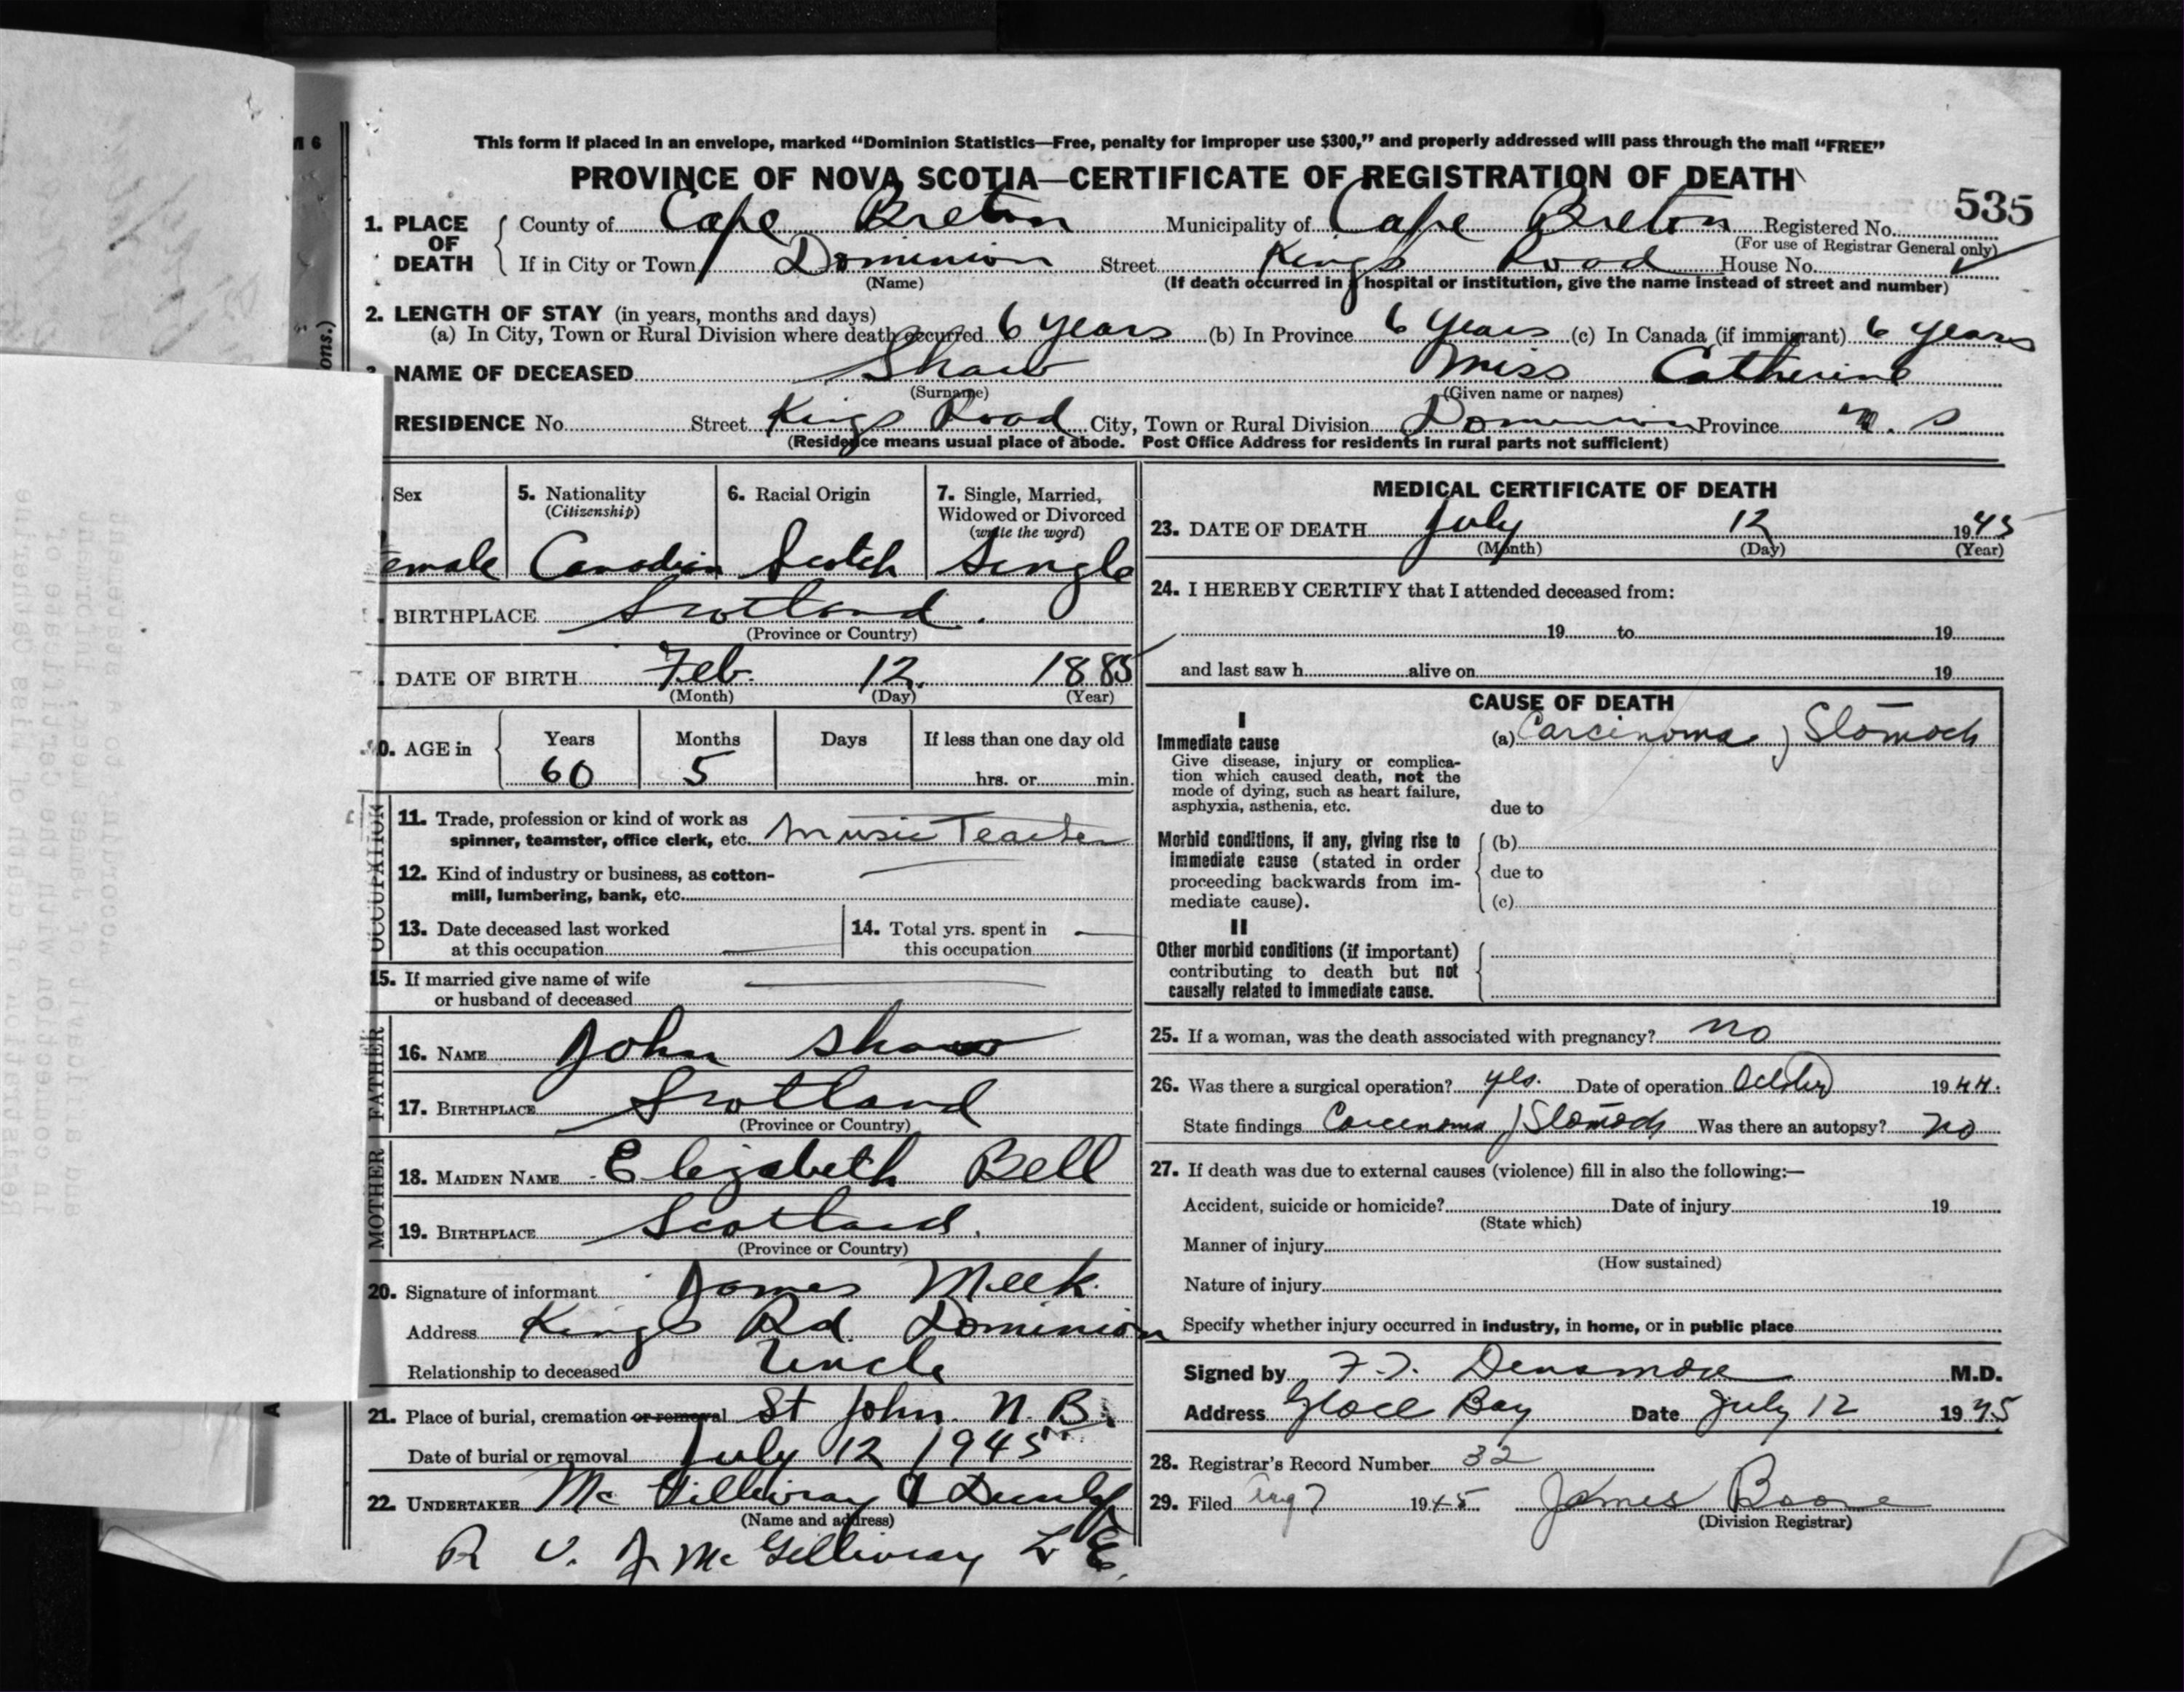 This form if placed in an envelope, marked “Dominion Statistics—Free, penalty for improper use $300,” and properly addressed will pass through the mail “FREE”
PROVINCE OF NOVA SCOTIA—CERTIFICATE OF REGISTRATION OF DEATH
535
1. PLACE OF DEATH County of Cape Breton Municipality of Cape Breton Registered No.
(For use of Registrar General only)
If in City or Town Dominion Street Kings Road House No.
(Name) (If death occurred in a hospital or institution, give the name instead of street and number)
2. LENGTH OF STAY (in years, months and days)
(a) In City, Town or Rural Division where death occurred 6 years (b) In Province 6 years (c) In Canada (if immigrant) 6 years
NAME OF DECEASED Shaw Miss Catherine
(Surname) (Given name or names)
RESIDENCE No. Street Kings Road City, Town or Rural Division Dominion Province N. S
(Residence means usual place of abode. Post Office Address for residents in rural parts not sufficient)
Sex
emale
5. Nationality
(Citizenship)
Canadian
6. Racial Origin
Scotch
7. Single, Married,
Widowed or Divorced
(write the word)
Single
BIRTHPLACE Scotland.
(Province or Country)
DATE OF BIRTH Feb. 12. 1885
(Month) (Day) (Year)
0. AGE in Years Months Days If less than one day old
60 5 hrs. or min.
OCCUPATION
11. Trade, profession or kind of work as
spinner, teamster, office clerk, etc. Music Teacher
12. Kind of industry or business, as cotton-
mill, lumbering, bank, etc.
13. Date deceased last worked
at this occupation
14. Total yrs. spent in
this occupation
15. If married give name of wife
or husband of deceased
FATHER
16. NAME John Shaw
17. BIRTHPLACE Scotland
(Province or Country)
MOTHER
18. MAIDEN NAME Elizabeth Bell
19. BIRTHPLACE Scotland.
(Province or Country)
20. Signature of informant James Meek
Address Kings Rd. Dominion
Relationship to deceased Uncle
21. Place of burial, cremation or removal St John. N. B.
Date of burial or removal July 12 1945
22. UNDERTAKER Mc Gillivray &
(Name and address)
R V. J Mc Gillivray
MEDICAL CERTIFICATE OF DEATH
23. DATE OF DEATH July 12 1945
(Month) (Day) (Year)
24. I HEREBY CERTIFY that I attended deceased from:
19 to 19
and last saw h alive on 19
CAUSE OF DEATH
I
Immediate cause
Give disease, injury or complica-
tion which caused death, not the
mode of dying, such as heart failure,
asphyxia, asthenia, etc.
(a) Carcinoma of Stomach
due to
Morbid conditions, if any, giving rise to
immediate cause (stated in order
proceeding backwards from im-
mediate cause).
(b)
due to
(c)
II
Other morbid conditions (if important)
contributing to death but not
causally related to immediate cause.
25. If a woman, was the death associated with pregnancy? no
26. Was there a surgical operation? yes. Date of operation October 1944.
State findings Carcinoma of Stomach Was there an autopsy? no
27. If death was due to external causes (violence) fill in also the following:—
Accident, suicide or homicide? Date of injury 19
(State which)
Manner of injury
(How sustained)
Nature of injury
Specify whether injury occurred in industry, in home, or in public place
Signed by F. T. Densmore M.D.
Address Glace Bay Date July 12 1945
28. Registrar's Record Number 32
29. Filed Aug 7 1945 James Boone
(Division Registrar)